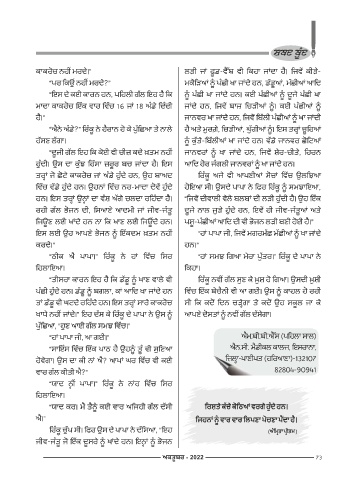 ਸ਼ਬਦ ਬੂੰਦ
ਕਾਕਰੋਚ ਨਹੀਂ ਮਰਦੇ।"
"ਪਰ ਕਿਉਂ ਨਹੀਂ ਮਰਦੇ?"
"ਇਸ ਦੇ ਕਈ ਕਾਰਨ ਹਨ, ਪਹਿਲੀ ਗੱਲ ਇਹ ਹੈ ਕਿ
ਮਾਦਾ ਕਾਕਰੋਚ ਇੱਕ ਵਾਰ ਵਿੱਚ 16 ਜਾਂ 18 ਅੰਡੇ ਦਿੰਦੀ
ਹੈ।"
"ਐਨੇ ਅੰਡੇ?" ਰਿੰਕੂ ਨੇ ਹੈਰਾਨ ਹੋ ਕੇ ਪੁੱਛਿਆ ਤੇ ਨਾਲੇ
ਹੱਸਣ ਲੱਗਾ।
"ਦੂਜੀ ਗੱਲ ਇਹ ਕਿ ਕੋਈ ਵੀ ਚੀਜ਼ ਕਦੇ ਖ਼ਤਮ ਨਹੀਂ
ਹੁੰਦੀ। ਉਸ ਦਾ ਕੁੱਝ ਹਿੱਸਾ ਜ਼ਰੂਰ ਬਚ ਜਾਂਦਾ ਹੈ। ਇਸ
ਤਰ੍ਹਾਂ ਜੋ ਛੋਟੇ ਕਾਕਰੋਚ ਜਾਂ ਅੰਡੇ ਹੁੰਦੇ ਹਨ, ਉਹ ਬਾਅਦ
ਵਿੱਚ ਵੱਡੇ ਹੁੰਦੇ ਹਨ। ਉਹਨਾਂ ਵਿੱਚ ਨਰ-ਮਾਦਾ ਦੋਵੇਂ ਹੁੰਦੇ
ਹਨ। ਇਸ ਤਰ੍ਹਾਂ ਉਨ੍ਹਾਂ ਦਾ ਵੰਸ਼ ਅੱਗੇ ਚਲਦਾ ਰਹਿੰਦਾ ਹੈ।
ਰਹੀ ਗੱਲ ਭੋਜਨ ਦੀ, ਸਿਆਣੇ ਆਦਮੀ ਜਾਂ ਜੀਵ-ਜੰਤੂ
ਜਿਊਣ ਲਈ ਖਾਂਦੇ ਹਨ ਨਾ ਕਿ ਖਾਣ ਲਈ ਜਿਊਂਦੇ ਹਨ।
ਇਸ ਲਈ ਉਹ ਆਪਣੇ ਭੋਜਨ ਨੂੰ ਇੱਕਦਮ ਖ਼ਤਮ ਨਹੀਂ
ਕਰਦੇ।"
"ਠੀਕ ਐ ਪਾਪਾ।" ਰਿੰਕੂ ਨੇ ਹਾਂ ਵਿੱਚ ਸਿਰ
ਹਿਲਾਇਆ।
"ਤੀਸਰਾ ਕਾਰਨ ਇਹ ਹੈ ਕਿ ਡੱਡੂ ਨੂੰ ਖਾਣ ਵਾਲੇ ਵੀ
ਪੰਛੀ ਹੁੰਦੇ ਹਨ। ਡੱਡੂ ਨੂੰ ਬਗਲਾ, ਕਾਂ ਆਦਿ ਖਾ ਜਾਂਦੇ ਹਨ
ਤਾਂ ਡੱਡੂ ਵੀ ਘਟਦੇ ਰਹਿੰਦੇ ਹਨ। ਇਸ ਤਰ੍ਹਾਂ ਸਾਰੇ ਕਾਕਰੋਚ
ਖਾਧੇ ਨਹੀਂ ਜਾਂਦੇ।" ਇਹ ਦੱਸ ਕੇ ਰਿੰਕੂ ਦੇ ਪਾਪਾ ਨੇ ਉਸ ਨੂੰ
ਪੁੱਛਿਆ, "ਹੁਣ ਆਈ ਗੱਲ ਸਮਝ ਵਿੱਚ।"
"ਹਾਂ ਪਾਪਾ ਜੀ, ਆ ਗਈ।"
"ਸਾਇੰਸ ਵਿੱਚ ਇੱਕ ਪਾਠ ਹੈ ਉਹਨੂੰ ਤੂੰ ਵੀ ਸੁਣਿਆ
ਹੋਵੇਗਾ। ਉਸ ਦਾ ਕੀ ਨਾਂ ਐ? ਆਪਾਂ ਘਰ ਵਿੱਚ ਵੀ ਕਈ
ਵਾਰ ਗੱਲ ਕੀਤੀ ਐ?"
"ਯਾਦ ਨ੍ਹੀਂ ਪਾਪਾ।" ਰਿੰਕੂ ਨੇ ਨਾਂਹ ਵਿੱਚ ਸਿਰ
ਹਿਲਾਇਆ।
"ਯਾਦ ਕਰ। ਮੈਂ ਤੈਨੂੰ ਕਈ ਵਾਰ ਅਜਿਹੀ ਗੱਲ ਦੱਸੀ
ਐ।"
ਰਿੰਕੂ ਚੁੱਪ ਸੀ। ਫਿਰ ਉਸ ਦੇ ਪਾਪਾ ਨੇ ਦੱਸਿਆ, "ਇਹ
ਜੀਵ-ਜੰਤੂ ਜੋ ਇੱਕ ਦੂਸਰੇ ਨੂੰ ਖਾਂਦੇ ਹਨ। ਇਨ੍ਹਾਂ ਨੂੰ ਭੋਜਨ
ਲੜੀ ਜਾਂ ਫੂਡ-ਵੈੱਬ ਵੀ ਕਿਹਾ ਜਾਂਦਾ ਹੈ। ਜਿਵੇਂ ਕੀੜੇ-
ਮਕੌੜਿਆਂ ਨੂੰ ਪੰਛੀ ਖਾ ਜਾਂਦੇ ਹਨ, ਡੱਡੂਆਂ, ਮੱਛੀਆਂ ਆਦਿ
ਨੂੰ ਪੰਛੀ ਖਾ ਜਾਂਦੇ ਹਨ। ਕਈ ਪੰਛੀਆਂ ਨੂੰ ਦੂਜੇ ਪੰਛੀ ਖਾ
ਜਾਂਦੇ ਹਨ, ਜਿਵੇਂ ਬਾਜ ਚਿੜੀਆਂ ਨੂੰ। ਕਈ ਪੰਛੀਆਂ ਨੂੰ
ਜਾਨਵਰ ਖਾ ਜਾਂਦੇ ਹਨ, ਜਿਵੇਂ ਬਿੱਲੀ ਪੰਛੀਆਂ ਨੂੰ ਖਾ ਜਾਂਦੀ
ਹੈ ਅਤੇ ਮੁਰਗੇ, ਚਿੜੀਆਂ, ਘੁੱਗੀਆਂ ਨੂੰ। ਇਸ ਤਰ੍ਹਾਂ ਚੂਹਿਆਂ
ਨੂੰ ਕੁੱਤੇ-ਬਿੱਲੀਆਂ ਖਾ ਜਾਂਦੇ ਹਨ। ਵੱਡੇ ਜਾਨਵਰ ਛੋਟਿਆਂ
ਜਾਨਵਰਾਂ ਨੂੰ ਖਾ ਜਾਂਦੇ ਹਨ, ਜਿਵੇਂ ਸ਼ੇਰ-ਚੀਤੇ, ਹਿਰਨ
ਆਦਿ ਹੋਰ ਜੰਗਲੀ ਜਾਨਵਰਾਂ ਨੂੰ ਖਾ ਜਾਂਦੇ ਹਨ।
ਰਿੰਕੂ ਅਜੇ ਵੀ ਆਪਣੀਆਂ ਸੋਚਾਂ ਵਿੱਚ ਉਲਝਿਆ
ਹੋਇਆ ਸੀ। ਉਸਦੇ ਪਾਪਾ ਨੇ ਫਿਰ ਰਿੰਕੂ ਨੂੰ ਸਮਝਾਇਆ,
"ਜਿਵੇਂ ਦੀਵਾਲੀ ਵੇਲੇ ਬਲਬਾਂ ਦੀ ਲੜੀ ਹੁੰਦੀ ਹੈ। ਉਹ ਇੱਕ
ਦੂਜੇ ਨਾਲ ਜੁੜੇ ਹੁੰਦੇ ਹਨ, ਇਵੇਂ ਹੀ ਜੀਵ-ਜੰਤੂਆਂ ਅਤੇ
ਪਸ਼ੂ-ਪੰਛੀਆਂ ਆਦਿ ਦੀ ਵੀ ਭੋਜਨ ਲੜੀ ਬਣੀ ਹੋਈ ਹੈ।"
"ਹਾਂ ਪਾਪਾ ਜੀ, ਜਿਵੇਂ ਮਗਰਮੱਛ ਮੱਛੀਆਂ ਨੂੰ ਖਾ ਜਾਂਦੇ
ਹਨ।"
"ਹਾਂ ਸਮਝ ਗਿਆ ਮੇਰਾ ਪੁੱਤਰ।" ਰਿੰਕੂ ਦੇ ਪਾਪਾ ਨੇ
ਕਿਹਾ।
ਰਿੰਕੂ ਨਵੀਂ ਗੱਲ ਸੁਣ ਕੇ ਖੁਸ਼ ਹੋ ਗਿਆ। ਉਸਦੀ ਖੁਸ਼ੀ
ਵਿੱਚ ਇੱਕ ਬੇਚੈਨੀ ਵੀ ਆ ਗਈ। ਉਸ ਨੂੰ ਕਾਹਲ ਹੋ ਰਹੀ
ਸੀ ਕਿ ਕਦੋਂ ਦਿਨ ਚੜ੍ਹੇਗਾ ਤੇ ਕਦੋਂ ਉਹ ਸਕੂਲ ਜਾ ਕੇ
ਆਪਣੇ ਦੋਸਤਾਂ ਨੂੰ ਨਵੀਂ ਗੱਲ ਦੱਸੇਗਾ।
ਐਮ.ਬੀ.ਬੀ.ਐੱਸ (ਪਹਿਲਾ ਸਾਲ)
ਐੱਨ.ਸੀ. ਮੈਡੀਕਲ ਕਾਲਜ, ਇਸਰਾਨਾ,
ਜ਼ਿਲ੍ਹਾ-ਪਾਣੀਪਤ (ਹਰਿਆਣਾ)-132107
82804-90941
ਰਿਸ਼ਤੇ ਕੱਚੇ ਕੋਠਿਆਂ ਵਰਗੇ ਹੁੰਦੇ ਹਨ।
ਜਿਹਨਾਂ ਨੂੰ ਵਾਰ ਵਾਰ ਲਿਪਣਾ ਪੋਚਣਾ ਪੈਂਦਾ ਹੈ।
(ਅੰਮ੍ਰਿਤਾ ਪ੍ਰੀਤਮ)
ਅਕਤੂਬਰ - 2022
73